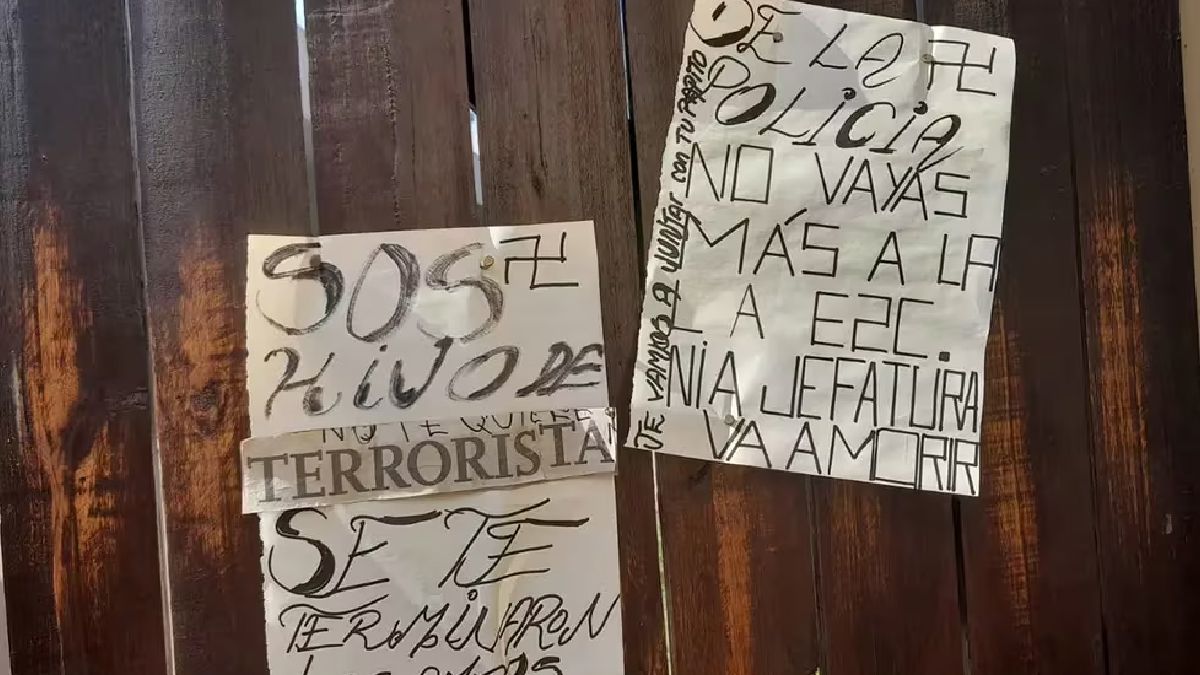 SOS 卐
HiJO DE
NO TE QUIERE
TERRORISTA
SE TE
TERMiNARON
DE LA 卐
POLiCiA
NO VAYAS
MÁS A LA
LA E2C.
NiA JEFATURA
VA A MORIR
TE VAMOS A JUNTAR CON TU PAPITO